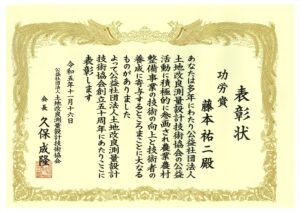 表彰状
功労賞
藤本祐二殿
あなたは多年にわたり公益社団法人
土地改良測量設計技術協会の公益
活動に積極的に参画され農業農村
整備事業の技術の向上と技術者の
養成に寄与するところまことに大なる
ものがありました
よって公益社団法人土地改良測量設計
技術協会創立五十周年にあたりここに
表彰します
令和五年十一月十六日
公益社団法人土地改良測量設計技術協会
会長 久保成隆